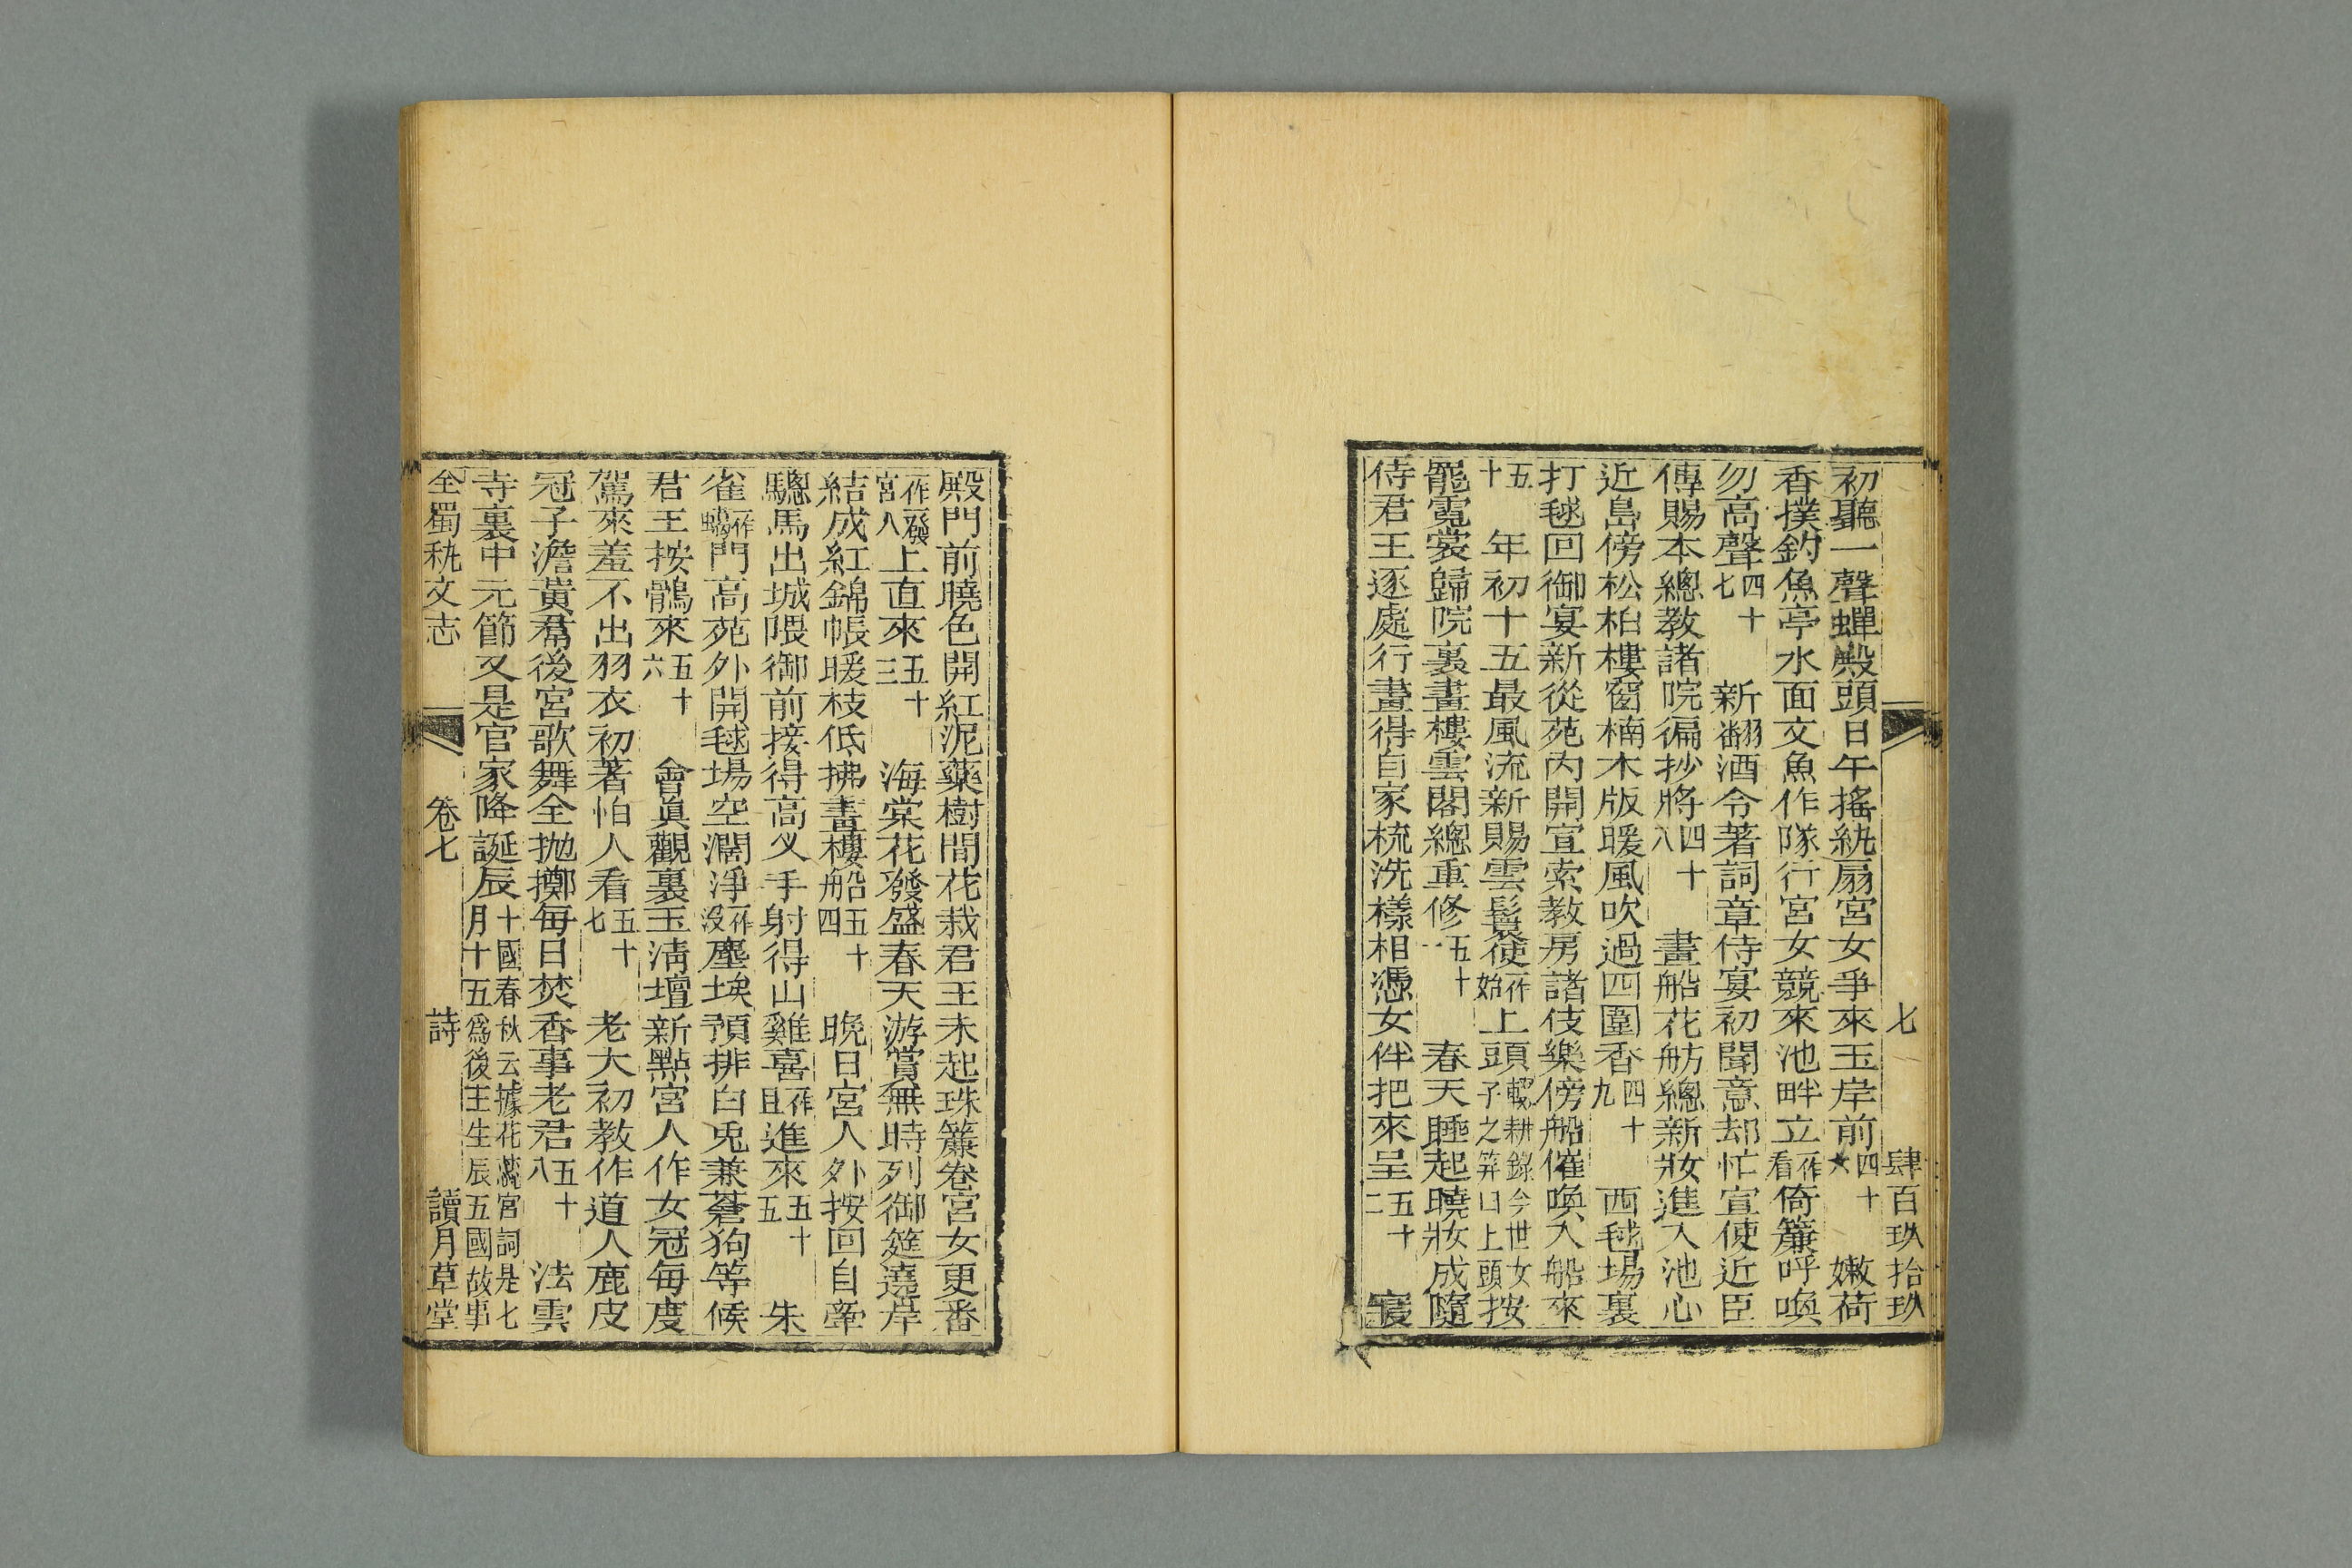 七 肆百玖拾玖
初聽一聲蟬殿頭日午搖紈扇宮女爭來玉岸前四十六 嫩荷
香撲釣魚亭水面文魚作隊行宮女競來池畔立一作看倚簾呼喚
勿高聲四十七 新翻酒令著詞章侍宴初聞意却忙宣使近臣
傳賜本總教諸院徧抄將四十八 畫船花舫總新妝進入池心
近島傍松柏樓窗楠木版暖風吹過四圍香四十九 西毬場裏
打毬回御宴新從苑內開宣索教房諸伎樂傍船催喚入船來
五十 年初十五最風流新賜雲鬟使一作始上頭輟耕錄今世女子之笄曰上頭按
罷霓裳歸院裏畫樓雲閣總重修五十一 春天睡起曉妝成隨
侍君王逐處行畫得自家梳洗樣相憑女伴把來呈五十二 寢
殿門前曉色開紅泥藥樹間花栽君王未起珠簾卷宮女更番
一作發宮人上直來五十三 海棠花發盛春天游賞無時列御筵遶岸
結成紅錦帳暖枝低拂畫樓船五十四 晚日宮人外按回自牽
驄馬出城隈御前接得高叉手射得山雞喜一作且進來五十五 朱
雀一作門高苑外開毬場空濶淨一作沒塵埃預排白兎兼蒼狗等候
君王按鶻來五十六 會眞觀裏玉淸壇新點宮人作女冠每度
駕來羞不出羽衣初著怕人看五十七 老大初教作道人鹿皮
冠子澹黃裙後宮歌舞全抛擲每日焚香事老君五十八 法雲
寺裏中元節又是官家降誕辰十國春秋云據花蕊宮詞是七月十五爲後主生辰五國故事
全蜀秇文志 卷七 詩 讀月草堂